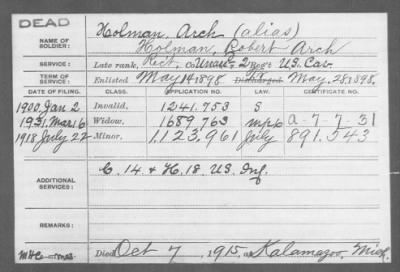 DEAD
NAME OF SOLDIER: Holman, Arch (alias)
Holman, Robert Arch
SERVICE: Late rank, Rect. Co Unas. 2 Reg't U.S. Cav.
TERM OF SERVICE: Enlisted May 14 1898 Discharged May 28 1898.
DATE OF FILING. CLASS. APPLICATION NO. CERTIFICATE NO.
1900 Jan 2 Invalid, 1241.753 S
1931 Mar 16 Widow, 1689.763 a-7-7-31
1918 July 22 Minor, 1.123.961 July 891.543
ADDITIONAL SERVICES: C. 14. & H. 18. U.S. Inf.
REMARKS:
Died Oct 7, 1915, at Kalamazoo, Mich